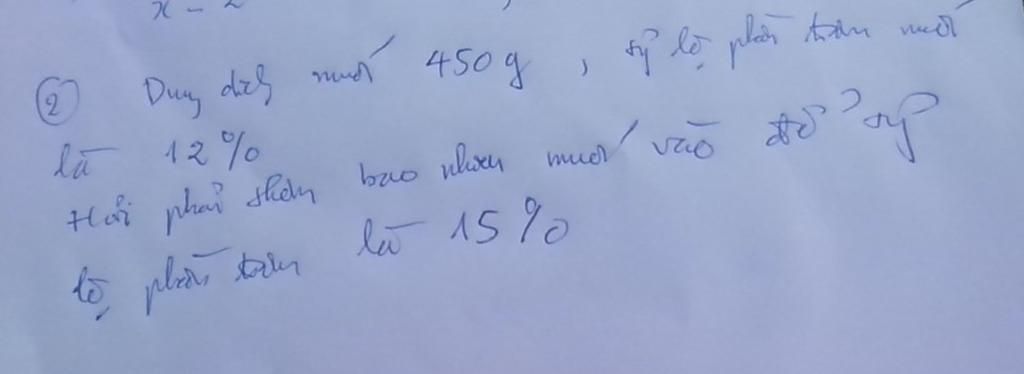 x - 2
② Dung dịch muối 450g, tỷ lệ phần trăm muối
là 12%
Hỏi phải thêm bao nhiêu muối vào để tỷ
lệ phần trăm là 15%